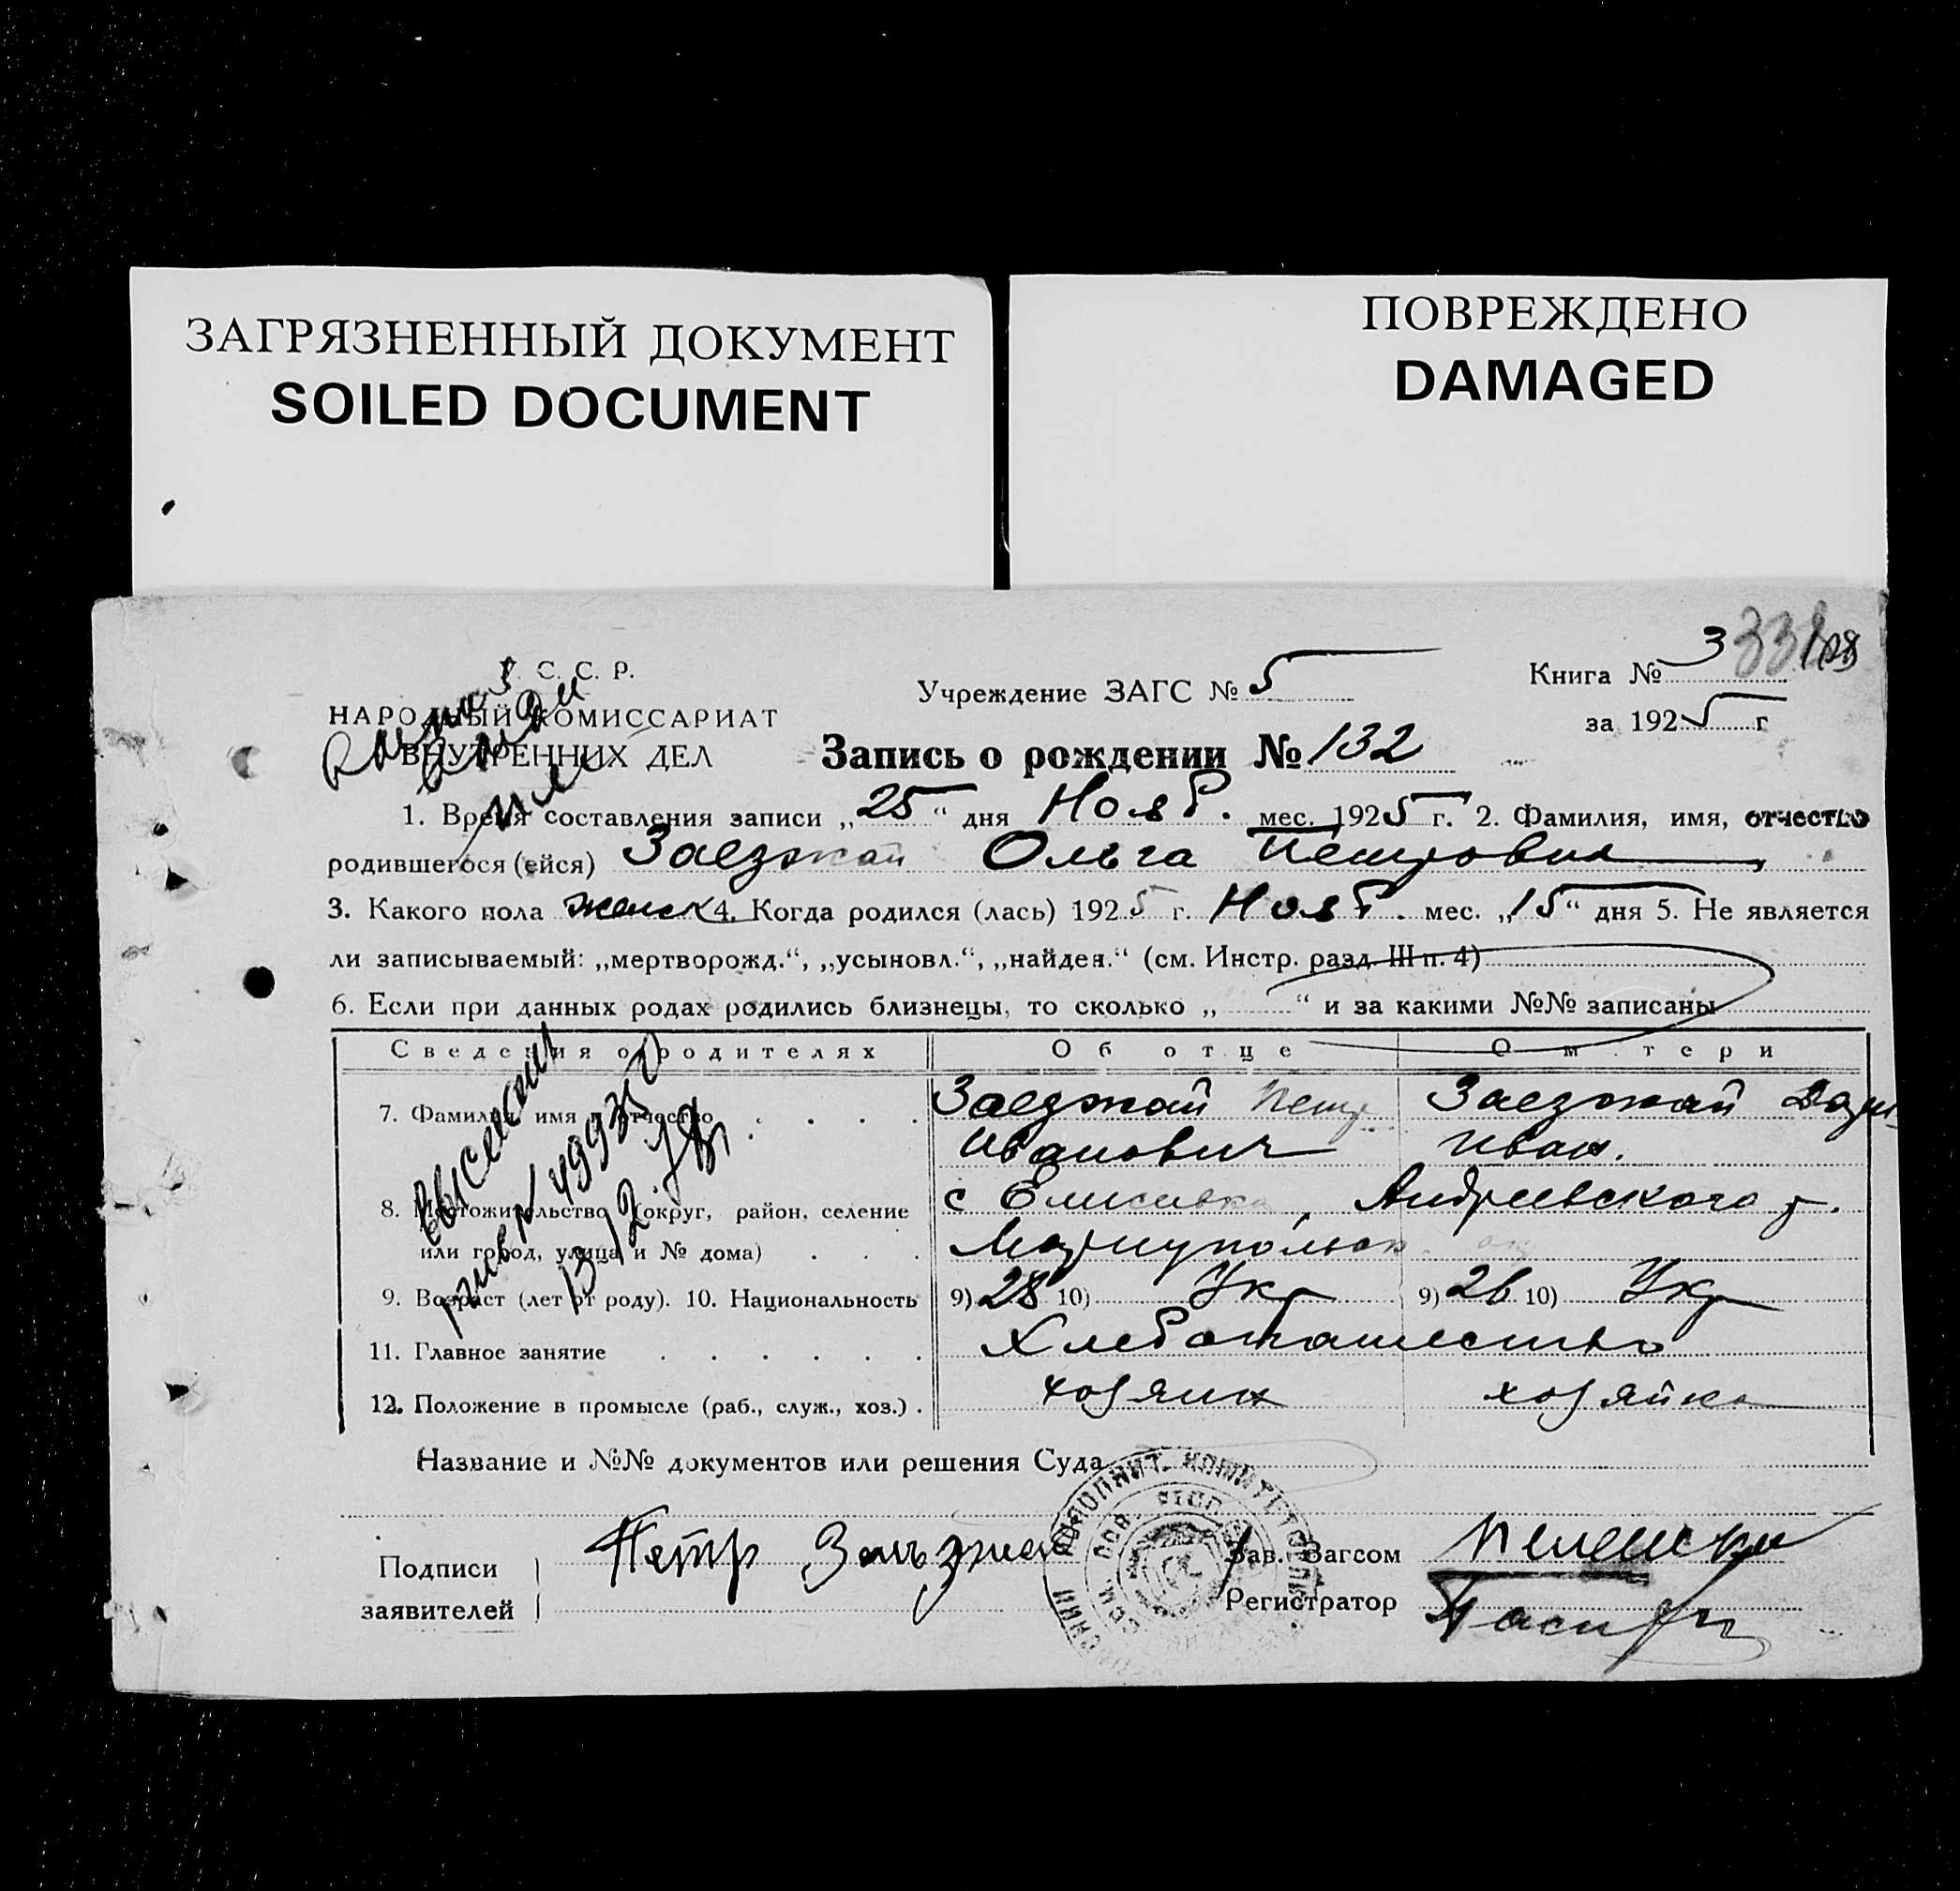 ЗАГРЯЗНЕННЫЙ ДОКУМЕНТ
SOILED DOCUMENT
ПОВРЕЖДЕНО
DAMAGED
У. С. С. Р.
НАРОДНЫЙ КОМИССАРИАТ
ВНУТРЕННИХ ДЕЛ
Учреждение ЗАГС № 5
Книга № 3
за 1925 г
Запись о рождении № 132
1. Время составления записи „25“ дня Нояб. мес. 1925 г. 2. Фамилия, имя, отчество
родившегося (ейся) Заезжай Ольга Петровна
3. Какого пола женск 4. Когда родился (лась) 1925 г. Нояб. мес. „15“ дня 5. Не является
ли записываемый: „мертворожд.“, „усыновл.“, „найден.“ (см. Инстр. разд. III п. 4)
6. Если при данных родах родились близнецы, то сколько „ “ и за какими №№ записаны
Сведения о родителях Об отце О м тери
7. Фамилия, имя и отчество Заезжай Петр Заезжай
Иванович Иван.
8. Местожительство (округ, район, селение с Елисивка, Андреевского р.
или город, улица и № дома) Мариупольск. ок
9. Возраст (лет от роду). 10. Национальность 9) 28 10) Укр 9) 26 10) Укр
11. Главное занятие Хлебопашество
12. Положение в промысле (раб., служ., хоз.) хозяин хозяйка
Название и №№ документов или решения Суда
Подписи Петр Заезжа Зав. Загсом
заявителей Регистратор